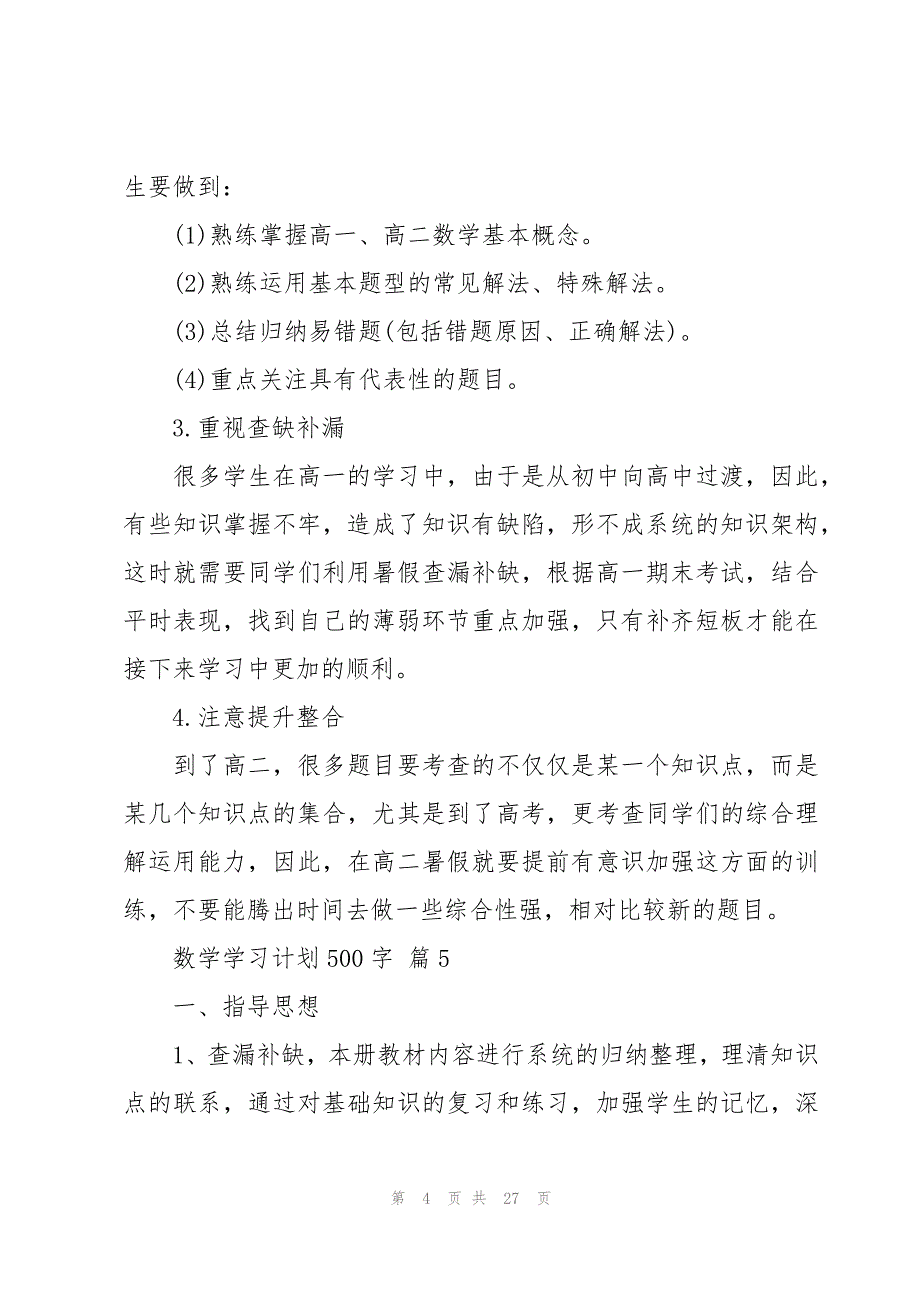 生要做到：
(1)熟练掌握高一、高二数学基本概念。
(2)熟练运用基本题型的常见解法、特殊解法。
(3)总结归纳易错题(包括错题原因、正确解法)。
(4)重点关注具有代表性的题目。
3.重视查缺补漏
很多学生在高一的学习中，由于是从初中向高中过渡，因此，
有些知识掌握不牢，造成了知识有缺陷，形不成系统的知识架构，
这时就需要同学们利用暑假查漏补缺，根据高一期末考试，结合
平时表现，找到自己的薄弱环节重点加强，只有补齐短板才能在
接下来学习中更加的顺利。
4.注意提升整合
到了高二，很多题目要考查的不仅仅是某一个知识点，而是
某几个知识点的集合，尤其是到了高考，更考查同学们的综合理
解运用能力，因此，在高二暑假就要提前有意识加强这方面的训
练，不要能腾出时间去做一些综合性强，相对比较新的题目。
数学学习计划500字 篇5
一、指导思想
1、查漏补缺，本册教材内容进行系统的归纳整理，理清知识
点的联系，通过对基础知识的复习和练习，加强学生的记忆，深
第 4 页 共 27 页